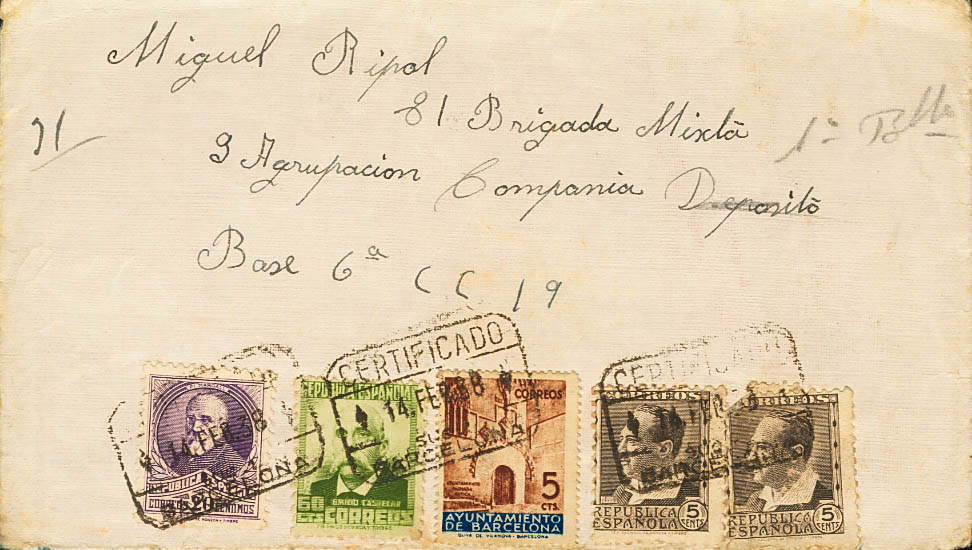 Miguel Ripol
81 Brigada Mixta
1ª Bllo
91/
3 Agrupacion Compania Deposito
Base 6ª CC 19
CERTIFICADO
14 FEB 38
SUC
BARCELONA
14 FEB 38
BARCELONA
CERTIFICADO
BARCELONA
20
REPUBLICA ESPAÑOLA
60
EMILIO CASTELAR
CORREOS
CORREOS
5
CTS.
AYUNTAMIENTO
DE BARCELONA
OLIVA DE VILANOVA-BARCELONA
CORREOS
REPUBLICA
ESPAÑOLA
5
CENTS
CORREOS
REPUBLICA
ESPAÑOLA
5
CENTS